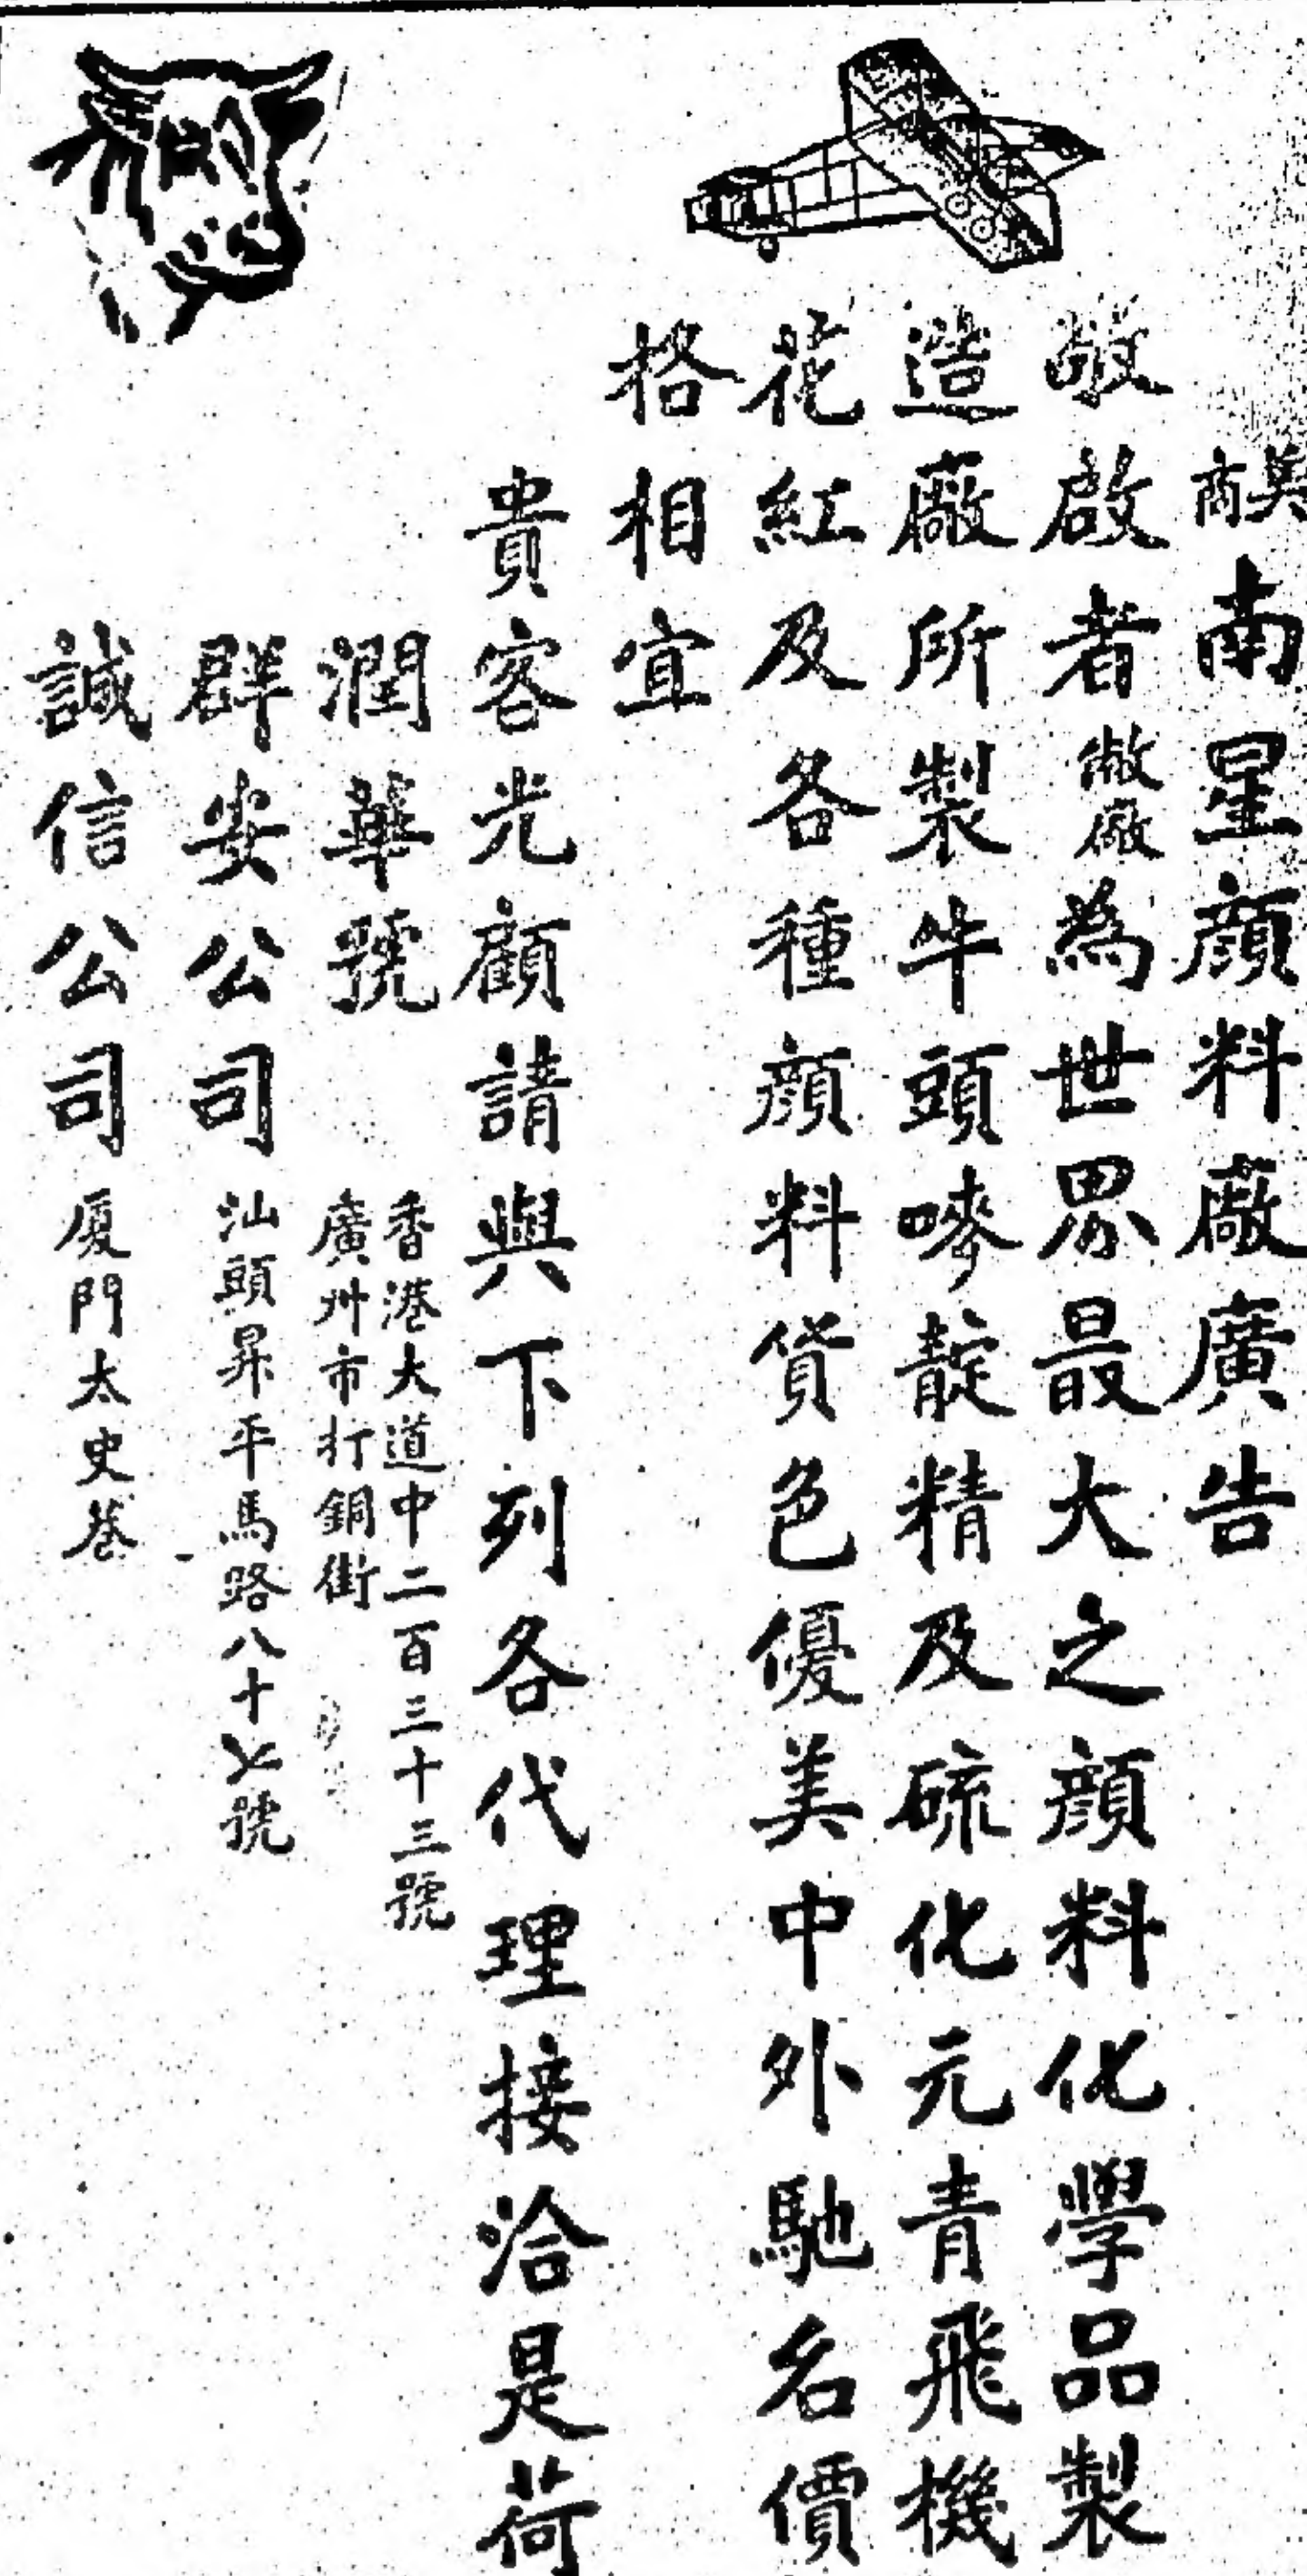 美商南星顔料廠廣告
敬啟者敝廠為世界最大之顔料化學品製
造廠所製牛頭嘜靛精及硫化元青飛機
花紅及各種顔料貨色優美中外馳名價
格相宜
貴客光顧請與下列各代理接洽是荷
潤華號 香港大道中二百三十三號
廣州市打銅街
群安公司 汕頭昇平馬路八十七號
誠信公司 厦門太史巷